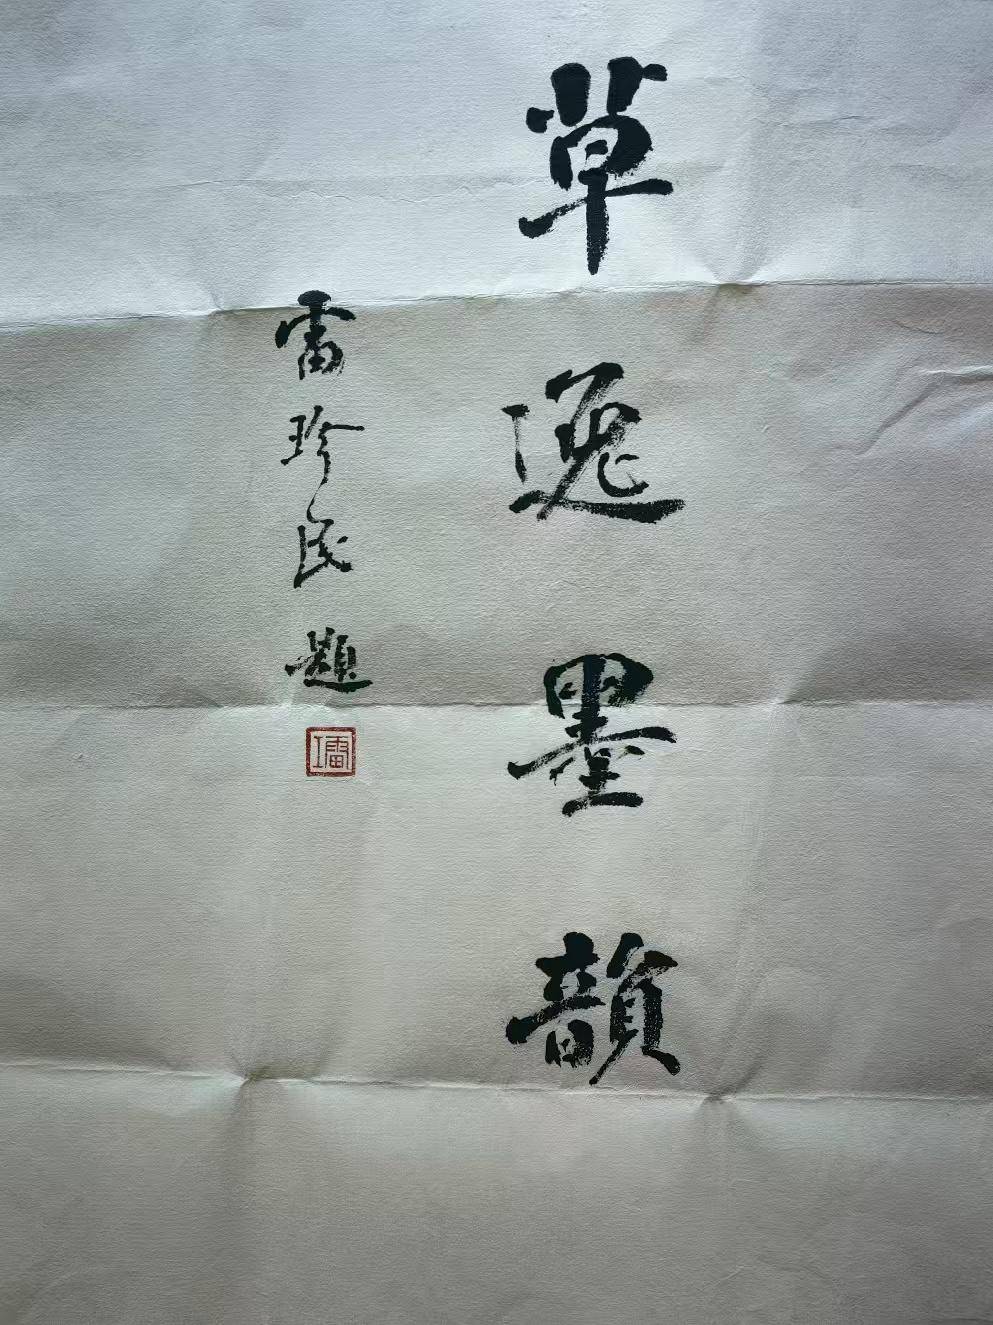 草逸墨韻
雷珍民題